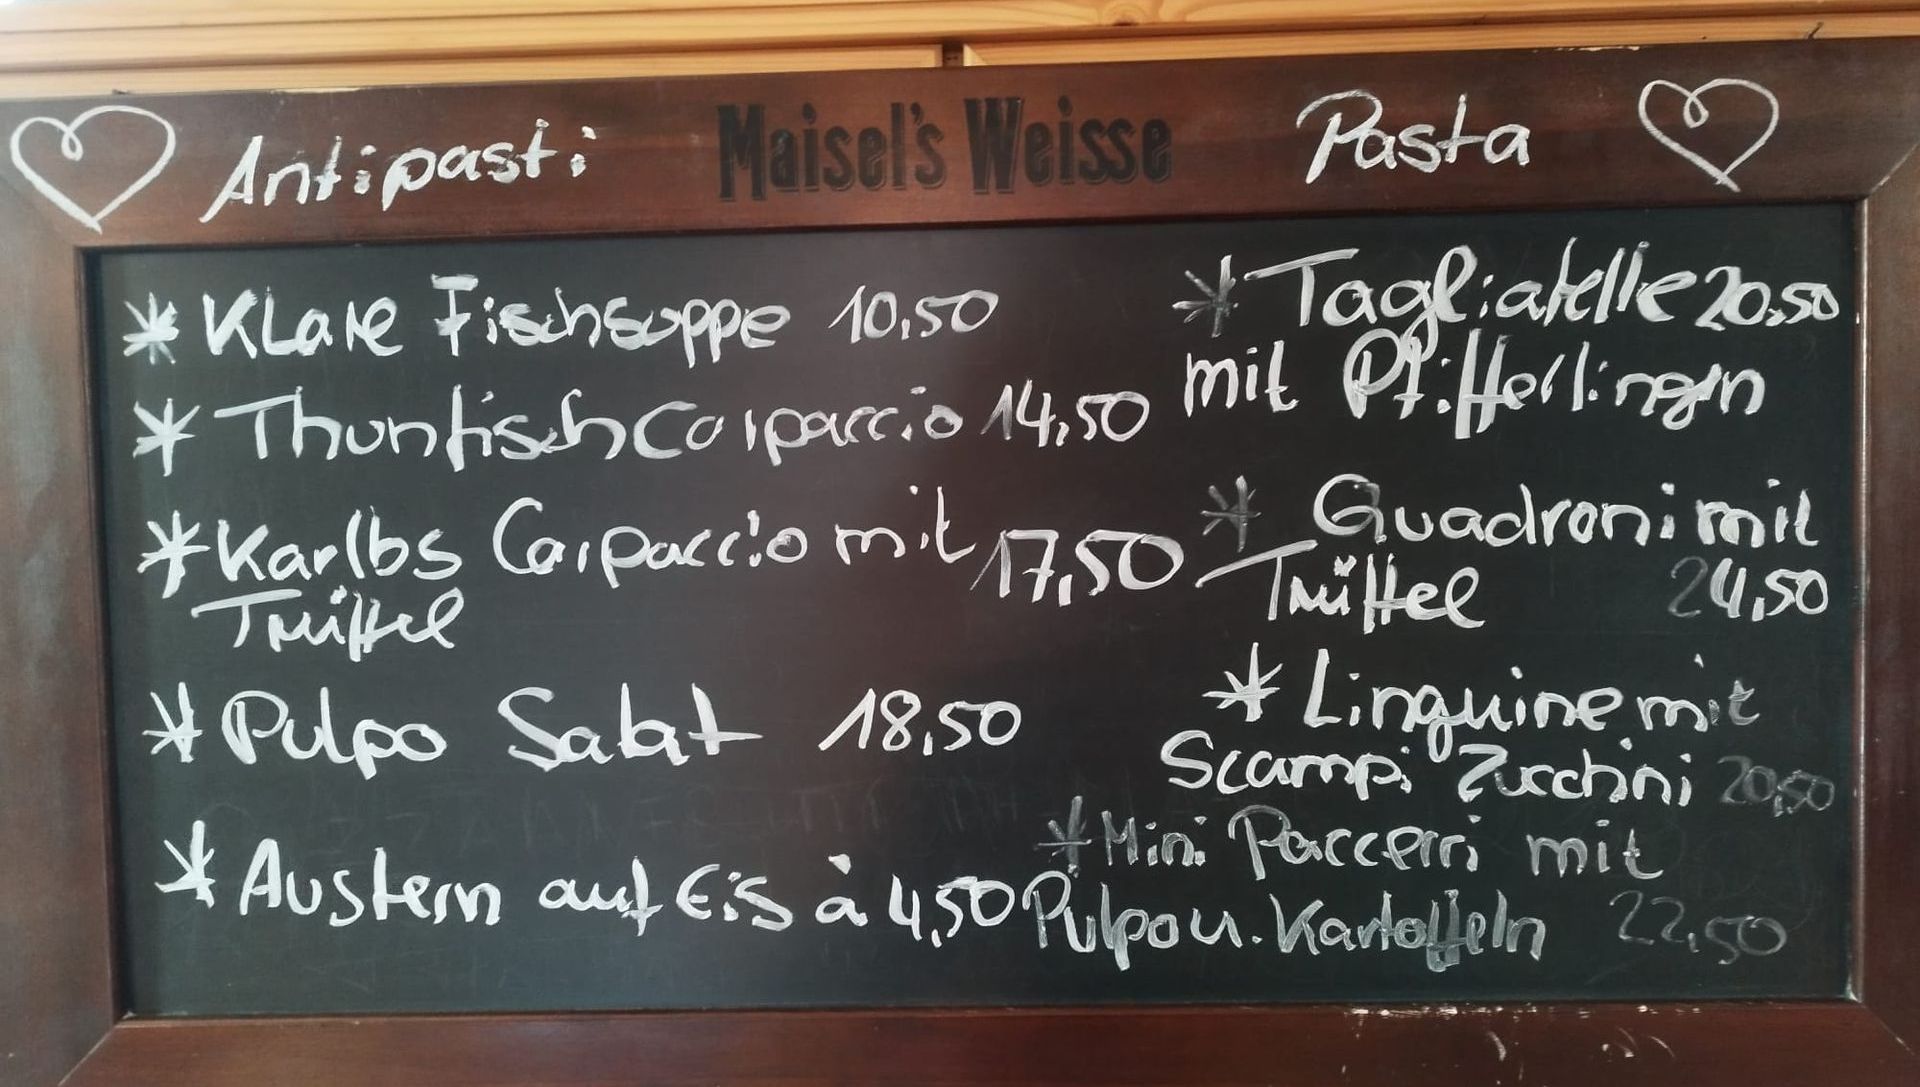 Antipasti
Maisel's Weisse
Pasta
* Klare Fischsuppe 10,50
* Thunfisch Carpaccio 14,50
* Karlbs Carpaccio mit 17,50
Trüffel
* Pulpo Salat 18,50
* Austern auf Eis à 4,50
* Tagliatelle 20,50
mit Pfifferlingen
* Quadroni mit
Trüffel 24,50
* Linguine mit
Scampi Zucchini 20,50
* Mini Paccerri mit
Pulpo u. Kartoffeln 22,50